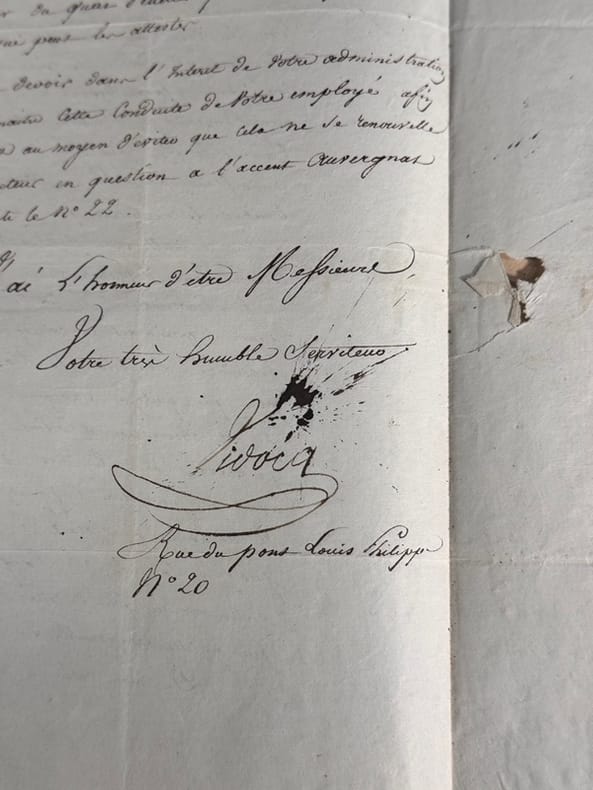 du quai d'
qui peut les attester
devoir dans l'Interet de Votre administration
cette Conduite de Votre employé afin
au moyen d'eviter que cela ne se renouvelle
en question a l'accent Auvergnat
le N° 22.
J'ai L'honneur d'etre Messieurs,
Votre très humble Serviteur
Vidocq
Rue du pont Louis Philippe
N° 20